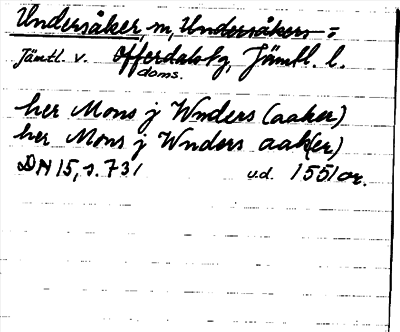 Undersåker, m, Undersåkers =
Jämtl. v. Offerdals tg, Jämtl. l.
doms.
her Mons j Wnders (aaker)
her Mons j Wnders aak(er)
DN 15, s. 731 u.d. 1551 or.